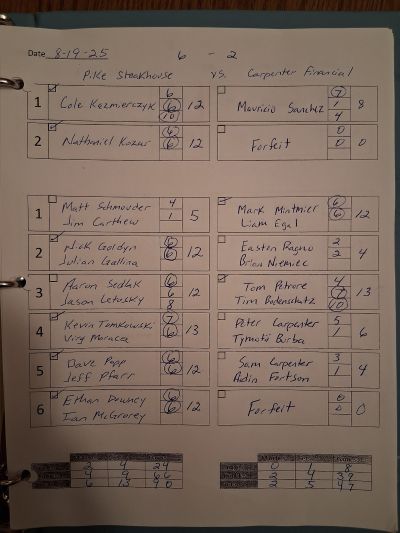 Date 8-19-25 6 - 2
Pike Steakhouse vs. Carpenter Financial
1 Cole Kazmierczyk 6 6 10 12 Mauricio Sanchez 7 1 4 8
2 Nathaniel Kozar 6 6 12 Forfeit 0 0 0
1 Matt Schmouder 4 Mark Mintmier 6
Jim Carthew 1 5 Liam Egal 6 12
2 Nick Goldyn 6 Easton Ragno 2
Julian Gallina 6 12 Brian Niemiec 2 4
3 Aaron Sedlak 6 Tom Petrore 4
Jason Letosky 6 8 12 Tim Bodenschatz 7 10 13
4 Kevin Tomkowski 7 Peter Carpenter 5
Virg Moraca 6 13 Tymoté Burba 1 6
5 Dave Popp 6 Sam Carpenter 3
Jeff Pfarr 6 12 Aidin Fortson 1 4
6 Ethan Downey 6 Forfeit 0
Ian McGrorey 6 12 0 0
2 4 24 0 1 8
4 9 66 2 4 39
6 13 90 2 5 47